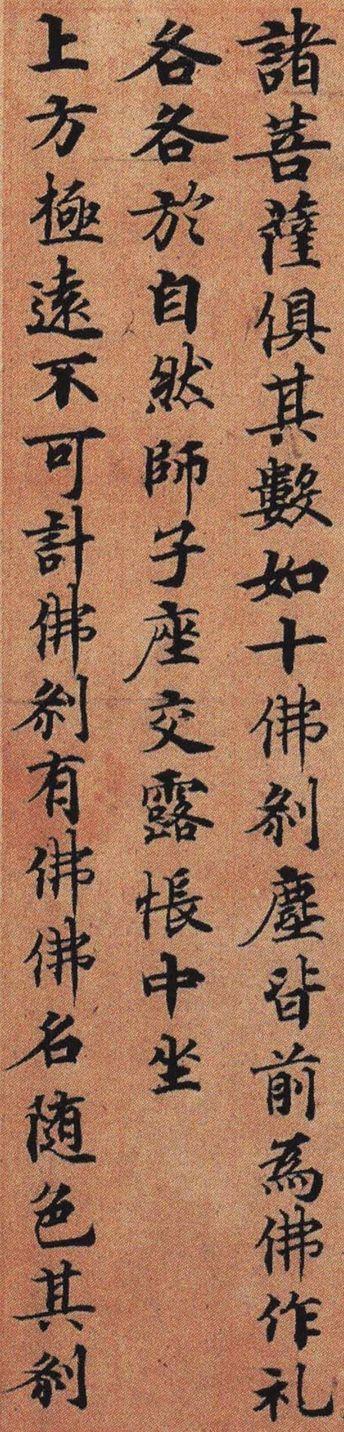 諸菩薩俱其數如十佛刹塵皆前為佛作礼
各各於自然師子座交露帳中坐
上方極遠不可計佛刹有佛佛名随色其刹